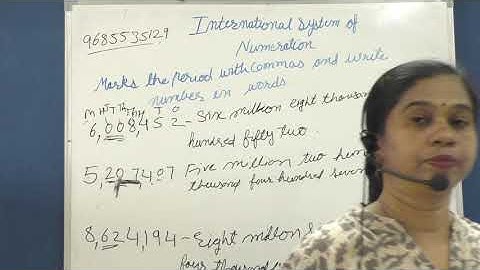 9685535129
International System of
Numeration
Marks the period with commas and write
number in words
M HTh TTh Th H T O
6,008,452 - Six million eight thousand
hundred fifty two.
5,207,407 Five million two
thousand four hundred seven
8,624,194 - Eight million
four thousand